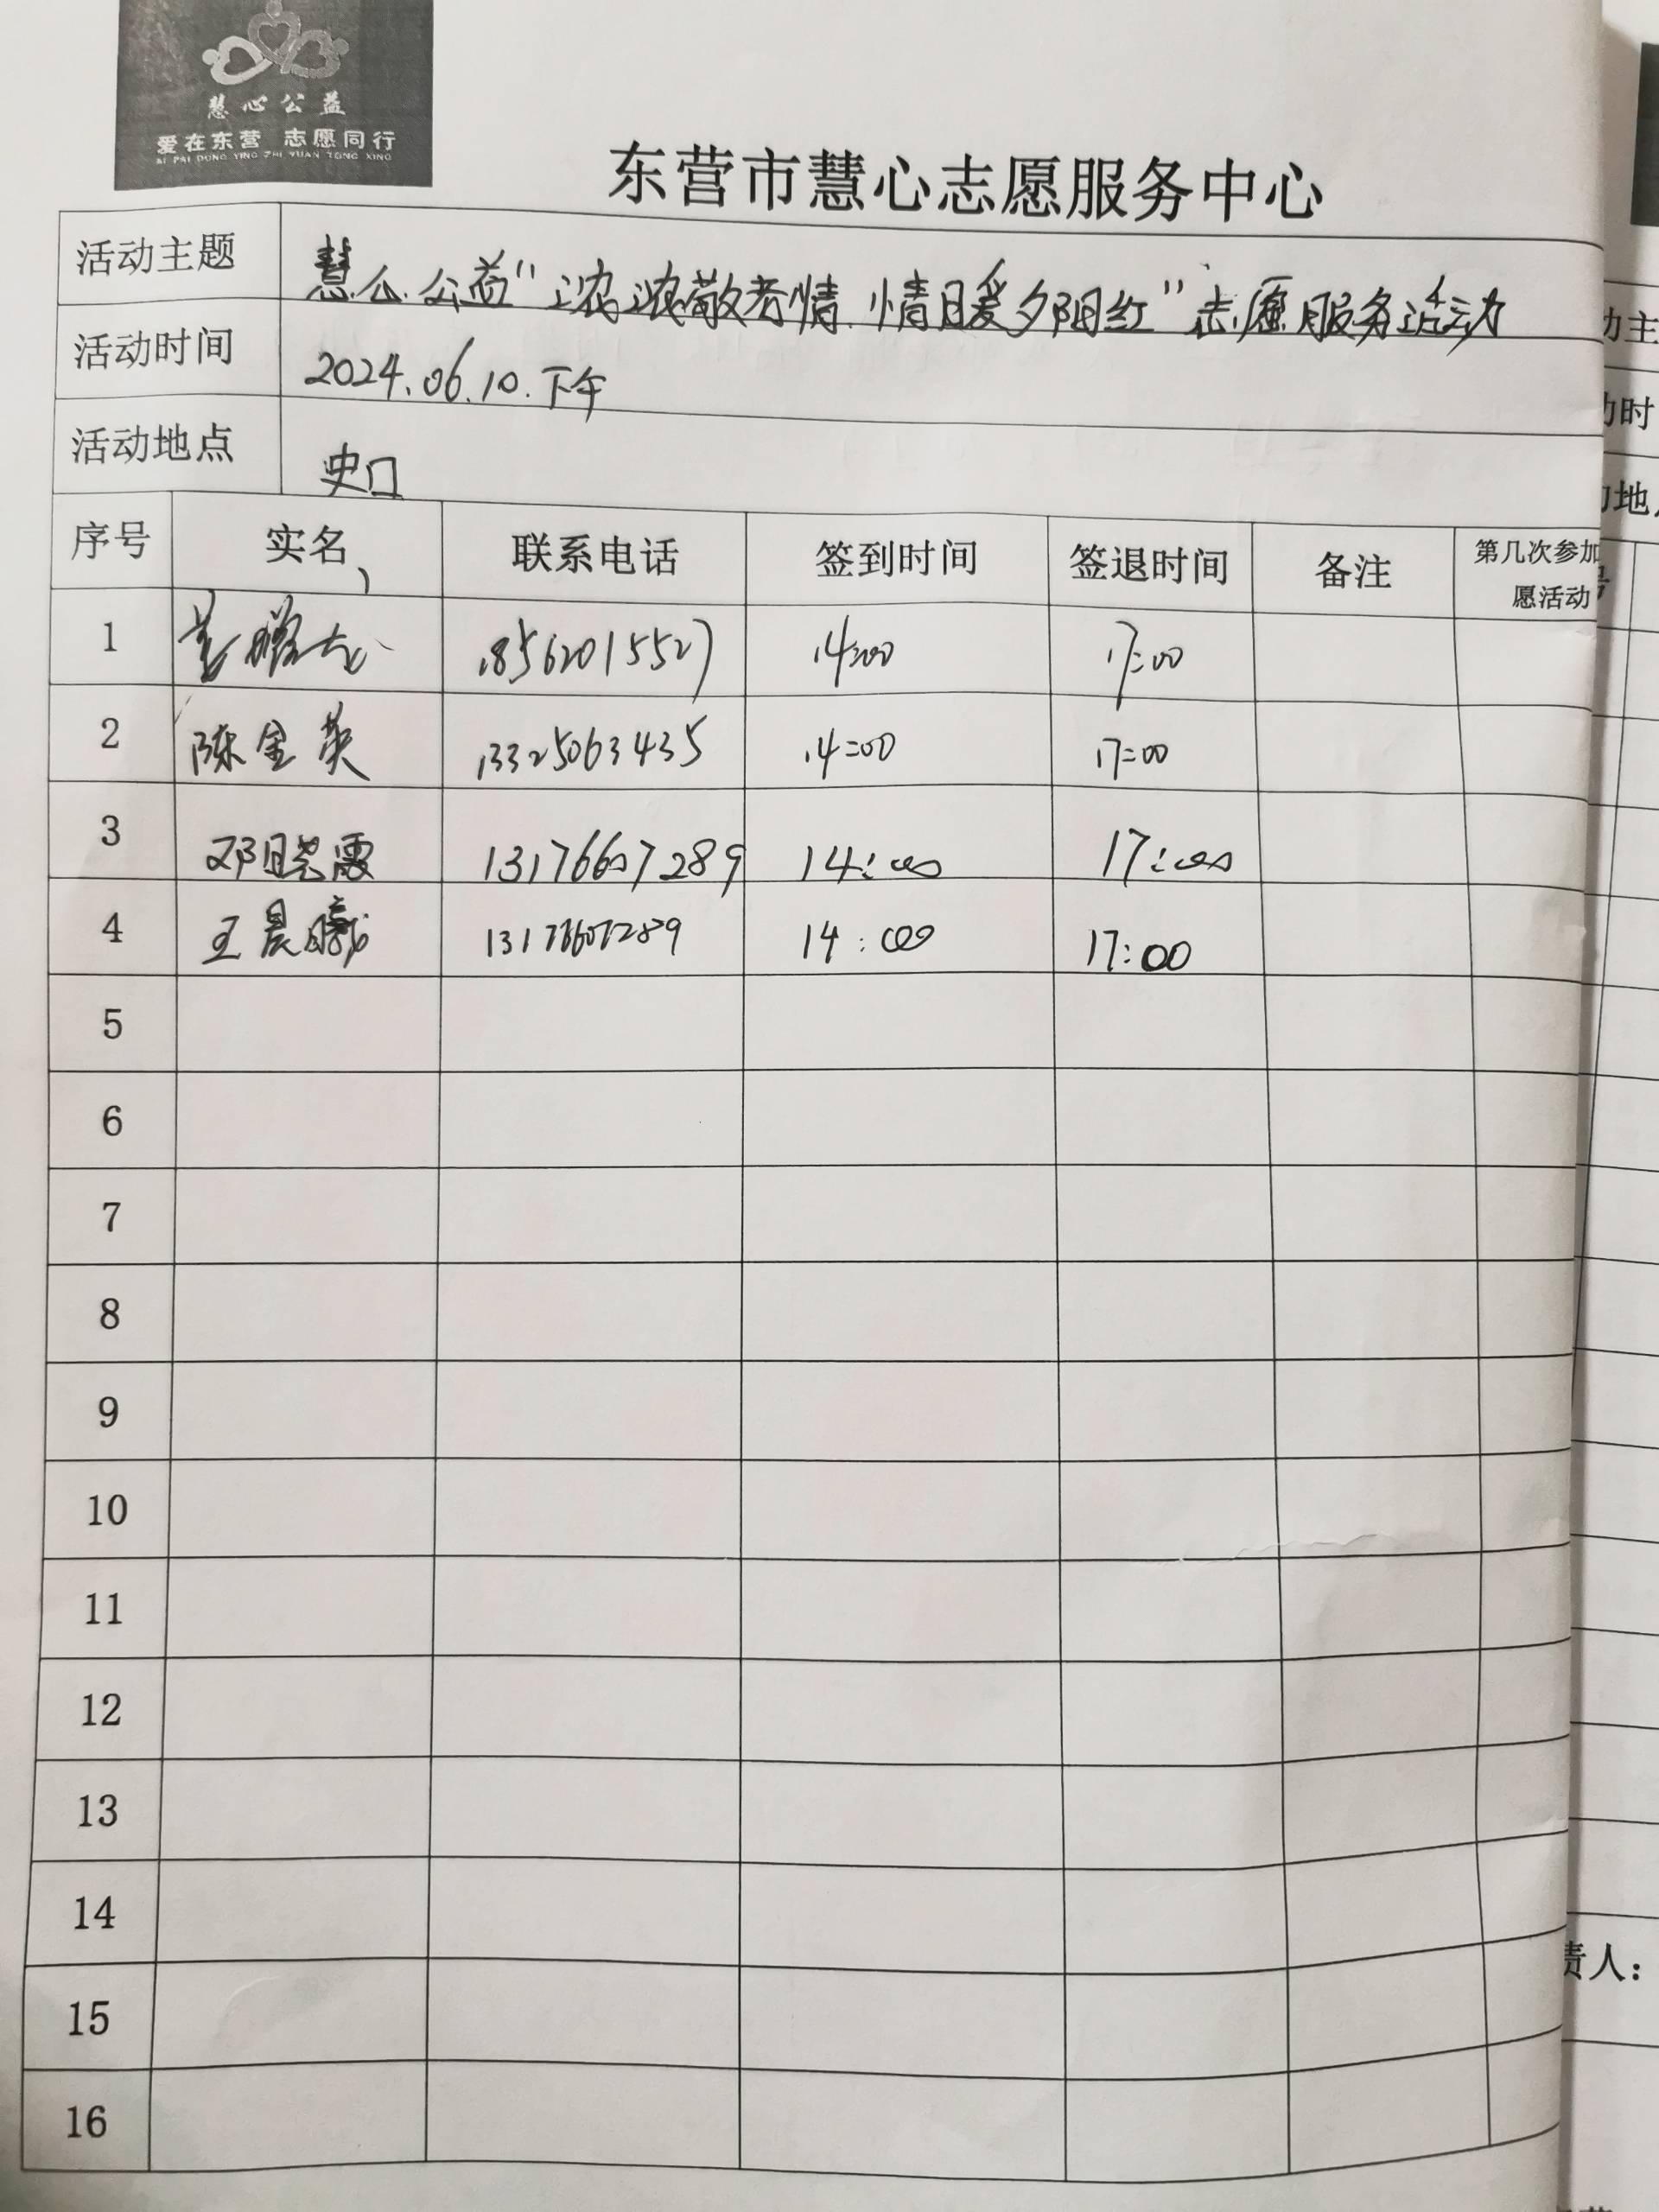 慧心公益
爱在东营 志愿同行
AI PAI DONG YING ZHI YUAN TONG XING
东营市慧心志愿服务中心
活动主题 慧心公益"浓浓敬老情.情暖夕阳红"志愿服务活动
活动时间 2024.06.10.下午
活动地点 史口
序号 实名 联系电话 签到时间 签退时间 备注 第几次参加
愿活动
1 18562015527 14:00 17:00
2 陈金英 13325063435 14:00 17:00
3 邓晓霞 13176607289 14:00 17:00
4 王晨曦 13176607289 14:00 17:00
5
6
7
8
9
10
11
12
13
14
15
16
动主
动时
地
号
责人: